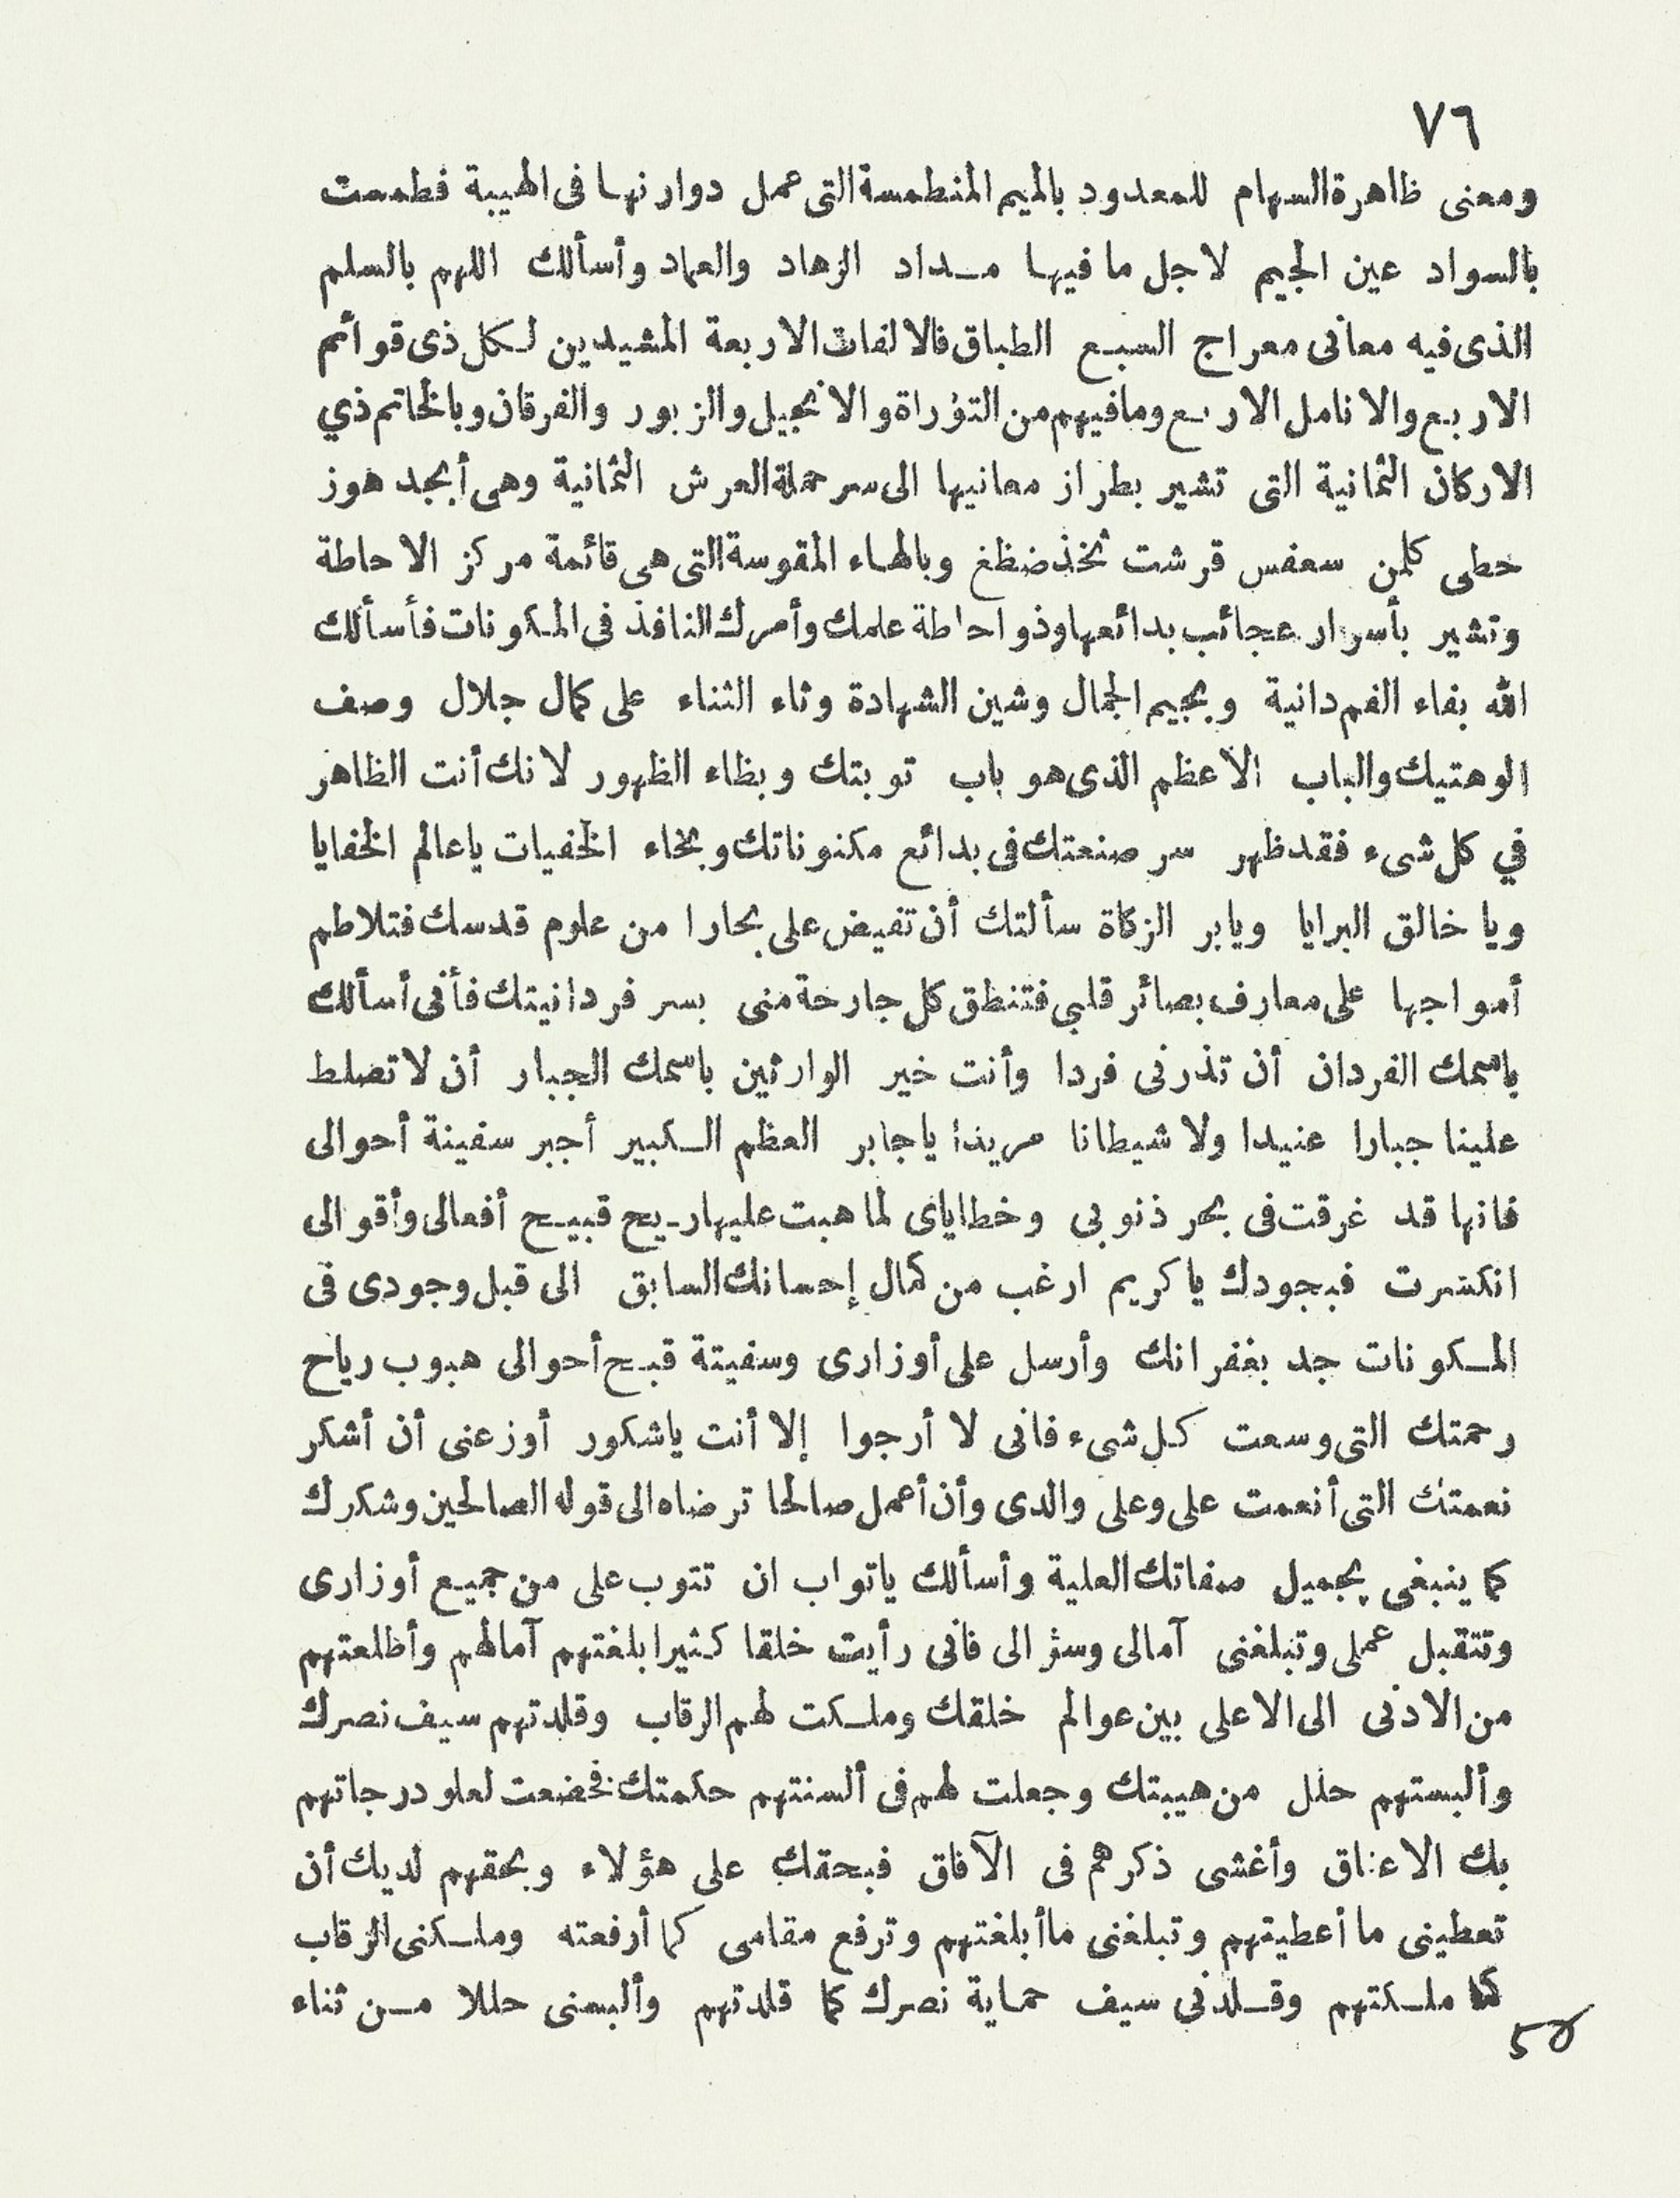 ٧٦
ومعنى ظاهرة السهام للمعدود بالميم المنطمسة التى عمل دوارنها فى الهيبة فطمست
بالسواد عين الجيم لاجل ما فيها مداد الزهاد والعماد وأسألك اللهم بالسلم
الذى فيه معانى معراج السبع الطباق فالالفات الاربعة المشيدين لكل ذى قوائم
الاربع والانامل الاربع ومافيهم من التوراة والانجيل والزبور والفرقان وبالخاتم ذي
الاركان الثمانية التى تشير بطراز معانيها الى سر حملة العرش الثمانية وهى أبجد هوز
حطى كلمن سعفس قرشت ثخذ ضظغ وبالهاء المقوسة التى هى قائمة مركز الاحاطة
وتشير بأسرار عجائب بدائعها وذو احاطة علمك وأمرك النافذ فى المكونات فأسألك
الله بفاء الفردانية وبجيم الجمال وشين الشهادة وثاء الثناء على كمال جلال وصف
الوهتيك والباب الاعظم الذى هو باب توبتك وبظاء الظهور لانك أنت الظاهر
في كل شىء فقد ظهر سر صنعتك فى بدائع مكنوناتك وبخاء الخفيات ياعالم الخفايا
ويا خالق البرايا ويابر الزكاة سألتك أن تفيض على بحارا من علوم قدسك فتلاطم
أمواجها على معارف بصائر قلبى فتنطق كل جارحة منى بسر فردانيتك فأنى أسألك
باسمك الفردان أن تذرنى فردا وأنت خير الوارثين باسمك الجبار أن لا تصلط
علينا جبارا عنيدا ولا شيطانا مريدا ياجابر العظم الكبير أجبر سفينة أحوالى
فانها قد غرقت فى بحر ذنوبى وخطاياى لما هبت عليها ريح قبيح أفعالى وأقوالى
انكسرت فبجودك ياكريم ارغب من كمال إحسانك السابق الى قبل وجودى فى
المكونات جد بغفرانك وأرسل على أوزارى وسفيتة قبح أحوالى هبوب رياح
رحمتك التى وسعت كل شىء فانى لا أرجوا إلا أنت ياشكور أوزعنى أن أشكر
نعمتك التى أنعمت على وعلى والدى وأن أعمل صالحا ترضاه الى قوله الصالحين وشكرك
كما ينبغى بجميل صفاتك العلية وأسألك ياتواب ان تتوب على من جميع أوزارى
وتتقبل عملى وتبلغنى آمالى وسؤالى فانى رأيت خلقا كثيرا بلغتهم آمالهم وأظلعتهم
من الادنى الى الاعلى بين عوالم خلقك وملكت لهم الرقاب وقلدتهم سيف نصرك
وألبستهم حلل من هيبتك وجعلت لهم فى ألسنتهم حكمتك فخضعت لعلو درجاتهم
بك الاعناق وأغشى ذكرهم فى الآفاق فبحقك على هؤلاء وبحقهم لديك أن
تعطينى ما أعطيتهم وتبلغنى ماأبلغتهم وترفع مقامى كما أرفعته وملكنى الرقاب
كما ملكتهم وقلدنى سيف حماية نصرك كما قلدتهم وألبسنى حللا من ثناء